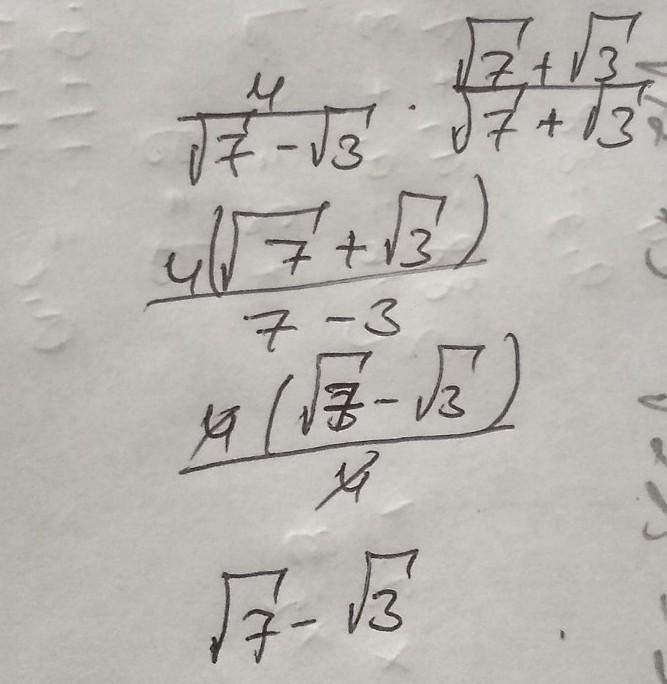 4/(√7 - √3) · (√7 + √3)/(√7 + √3)
4(√7 + √3)/(7 - 3)
4(√7 - √3)/4
√7 - √3